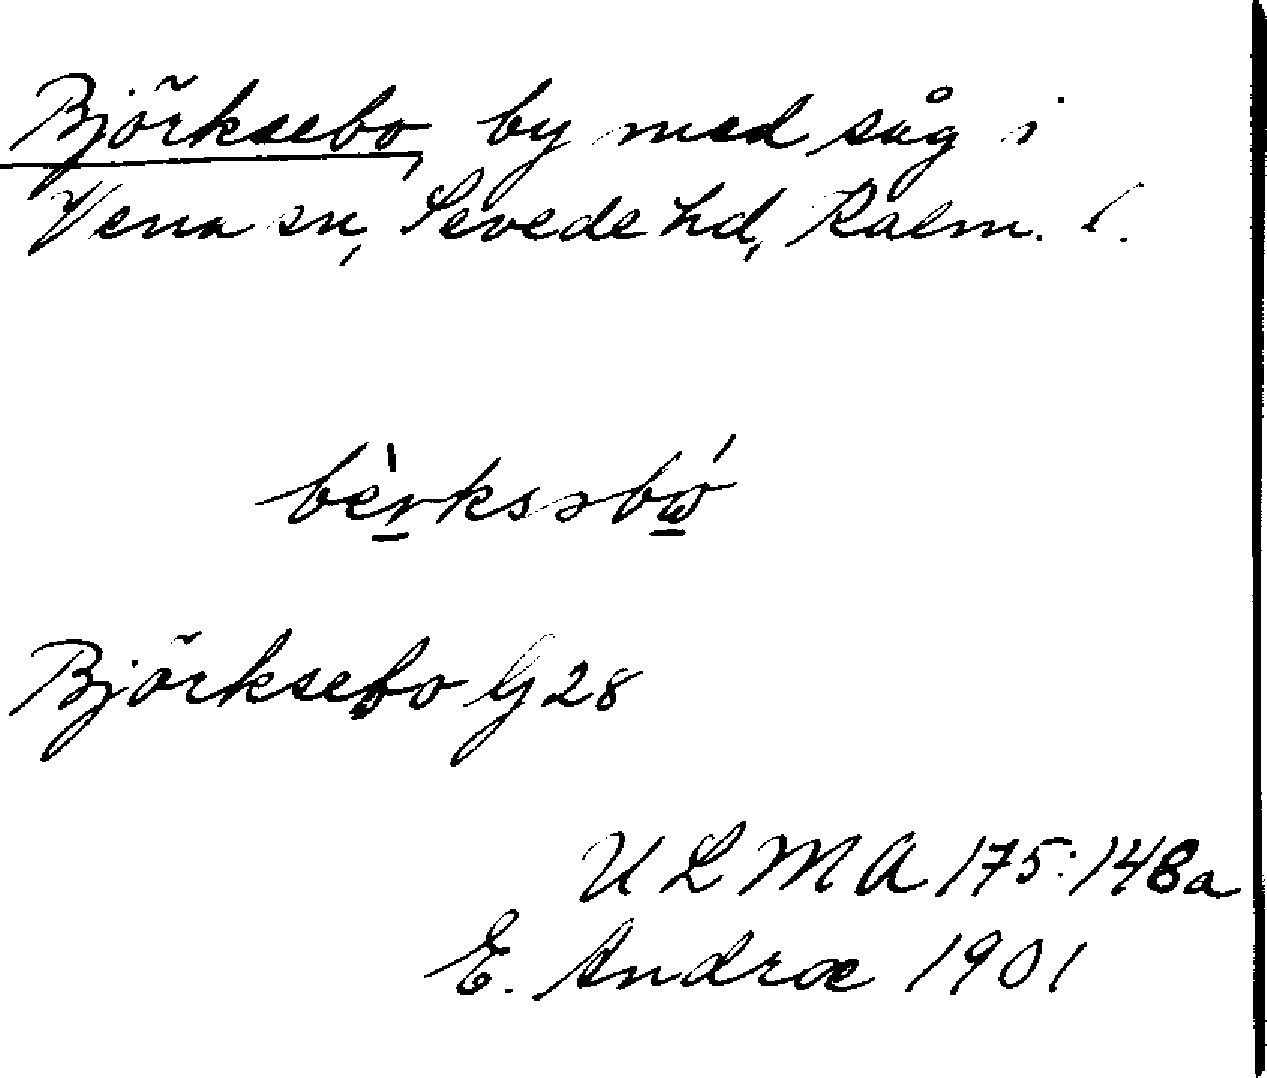 Björksebo, by med såg i
Vena sn, Sevede hd, Kalm. l.
bèrkssbώ
Björksebo G 28
ULMA 175:148a
E. Andræ 1901